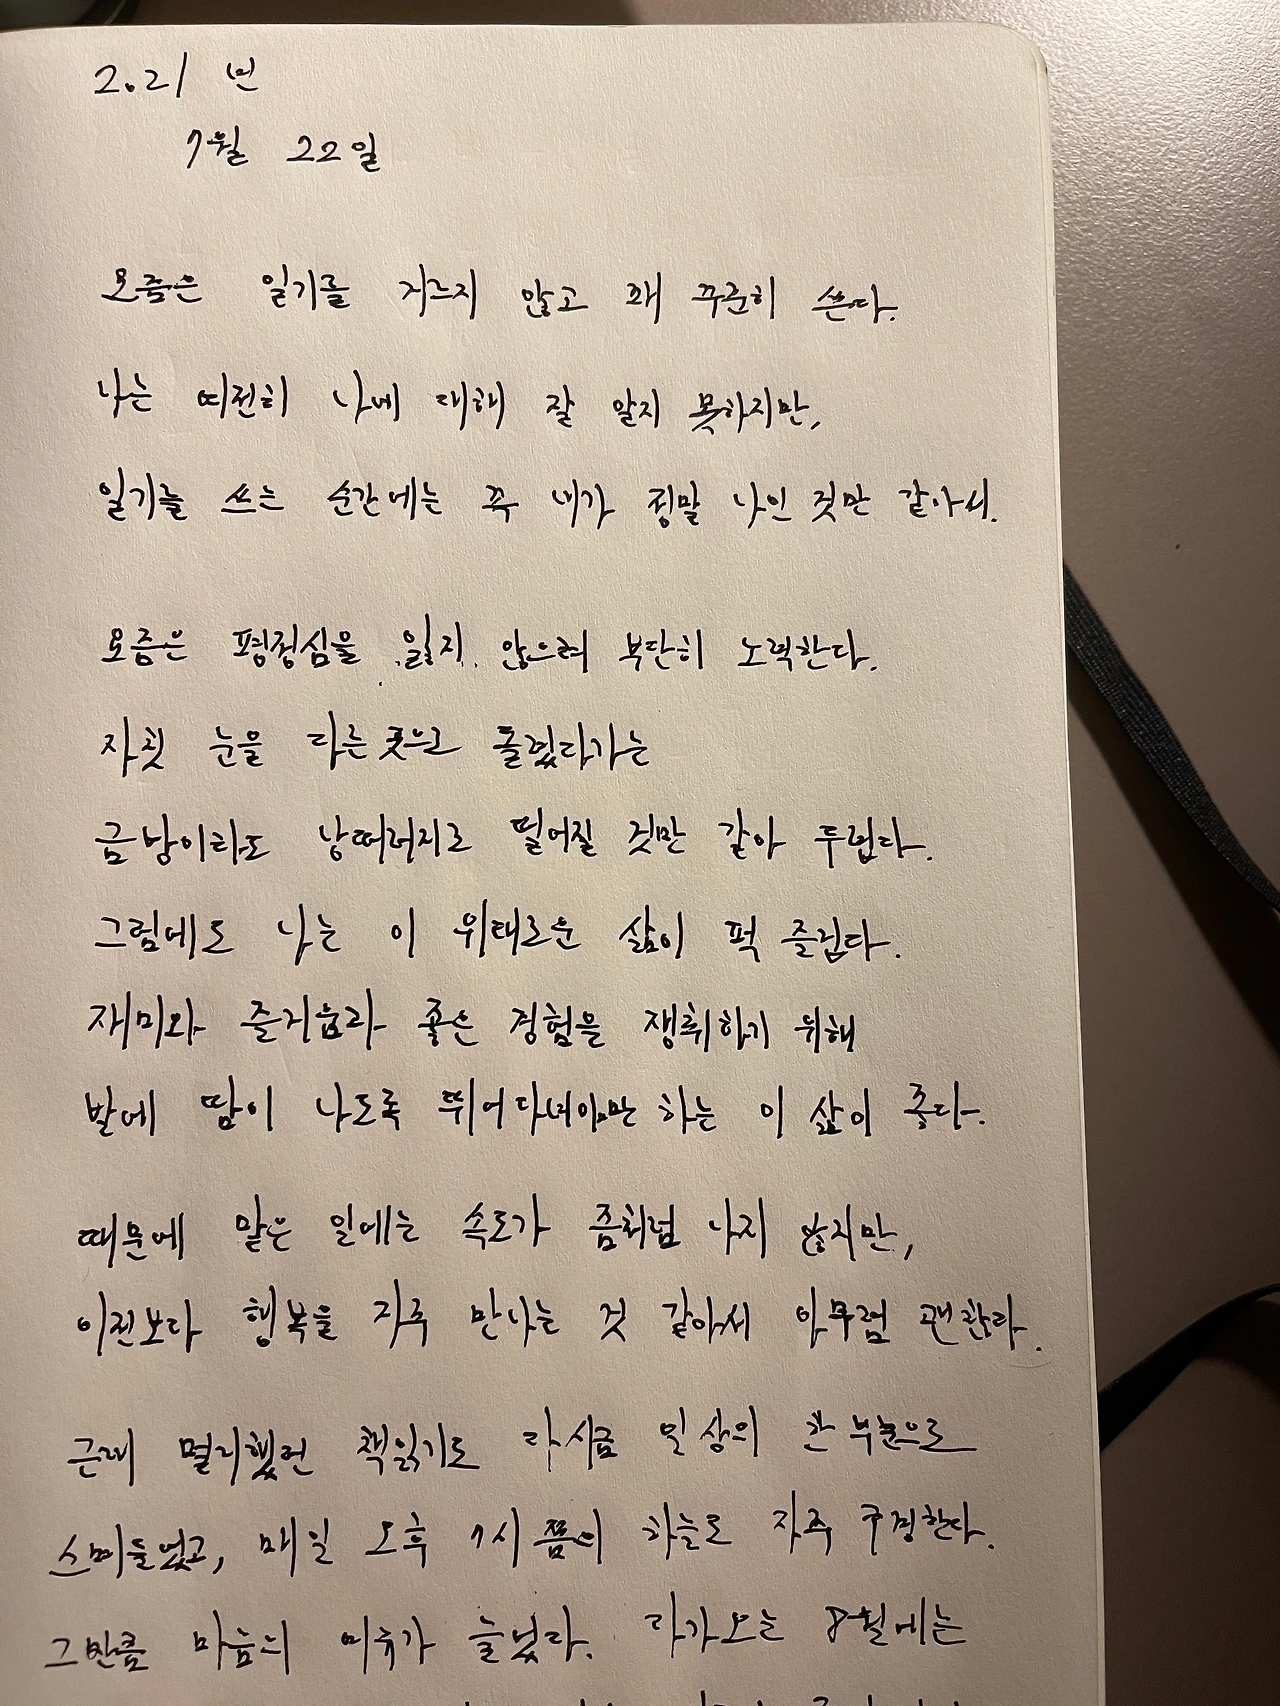 2021 년
7월 22일
요즘은 일기를 거르지 않고 꽤 꾸준히 쓴다.
나는 여전히 나에 대해 잘 알지 못하지만,
일기를 쓰는 순간에는 꼭 내가 정말 나인 것만 같아서.
요즘은 평정심을 잃지 않으려 부단히 노력한다.
자칫 눈을 다른 곳으로 돌렸다가는
금방이라도 낭떠러지로 떨어질 것만 같아 두렵다.
그럼에도 나는 이 위태로운 삶이 퍽 즐겁다.
재미와 즐거움과 좋은 경험을 쟁취하기 위해
발에 땀이 나도록 뛰어다녀야만 하는 이 삶이 좋다.
때문에 맡은 일에는 속도가 좀처럼 나지 않지만,
이전보다 행복을 자주 만나는 것 같아서 아무렴 괜찮다.
근래 멀리했던 책읽기도 다시금 일상의 한 부분으로
스며들었고, 매일 오후 7시 쯤의 하늘도 자주 구경한다.
그만큼 마음의 여유가 늘었다. 다가오는 8월에는